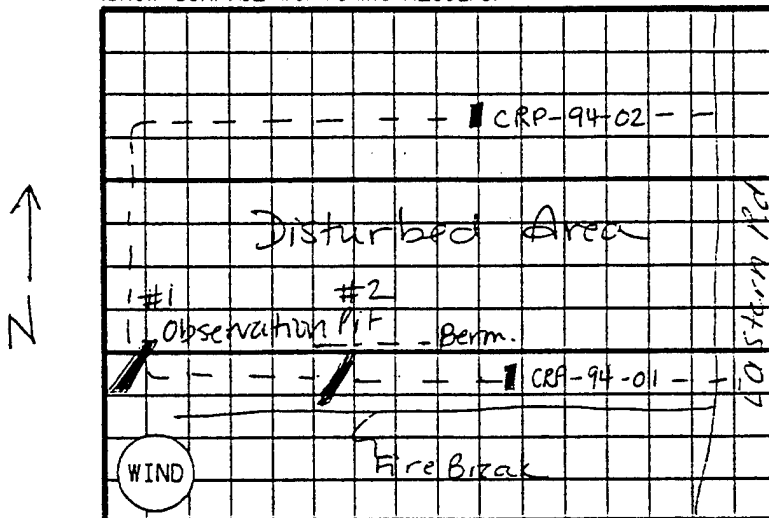 CRP-94-02
Disturbed Area
#1 #2
Observation Pit Berm.
CRP-94-01
Fire Break
WIND
N
Rd